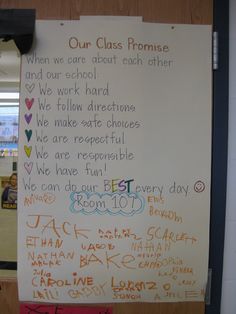 Our Class Promise
When we care about each other
and our school:
We work hard
We follow directions
We make safe choices
We are respectful
We are responsible
We have fun!
We can do our BEST every day
Room 107
JACK
SCARLETT
ETHAN
JACOB
NATHAN
NATHAN
BAKE
Julia
CAROLINE
Lorenzo